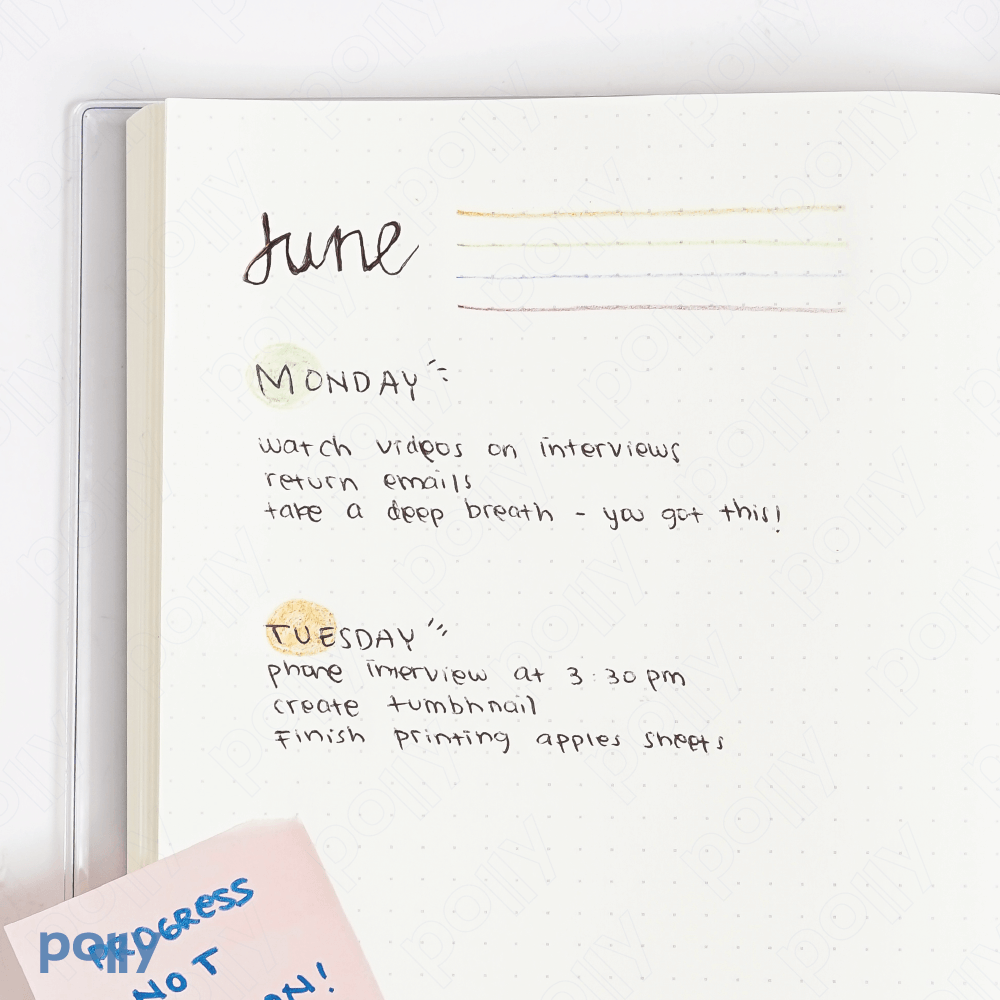 June
MONDAY
watch videos on interviews
return emails
take a deep breath - you got this!
TUESDAY
phone interview at 3:30 pm
create tumbhnail
Finish printing apples sheets
PROGRESS
NOT
polly